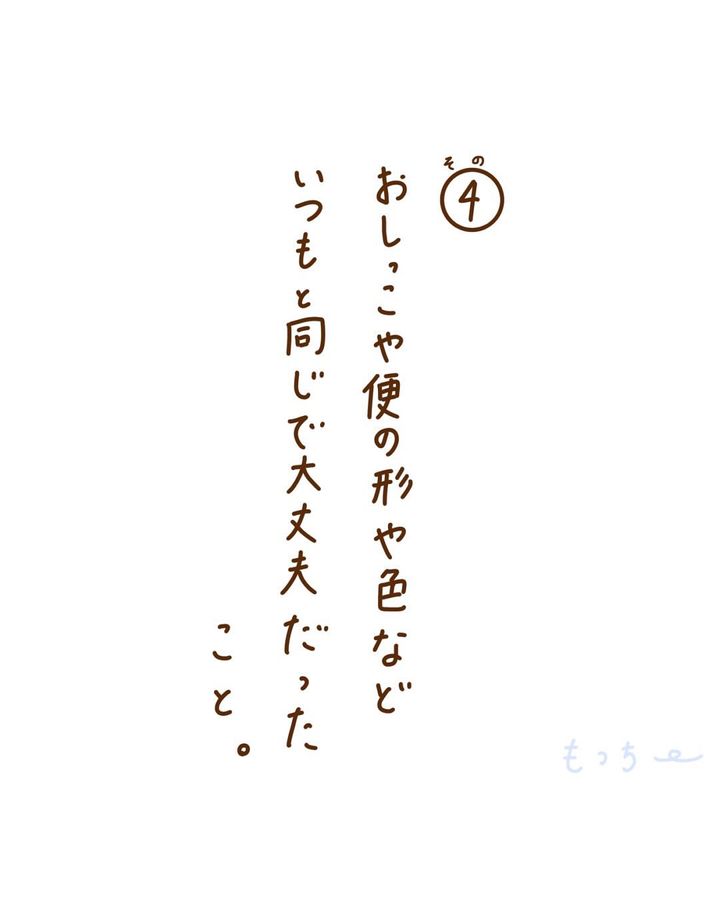 その
④
おしっこや便の形や色など
いつもと同じで大丈夫だった
こと。
もっちー